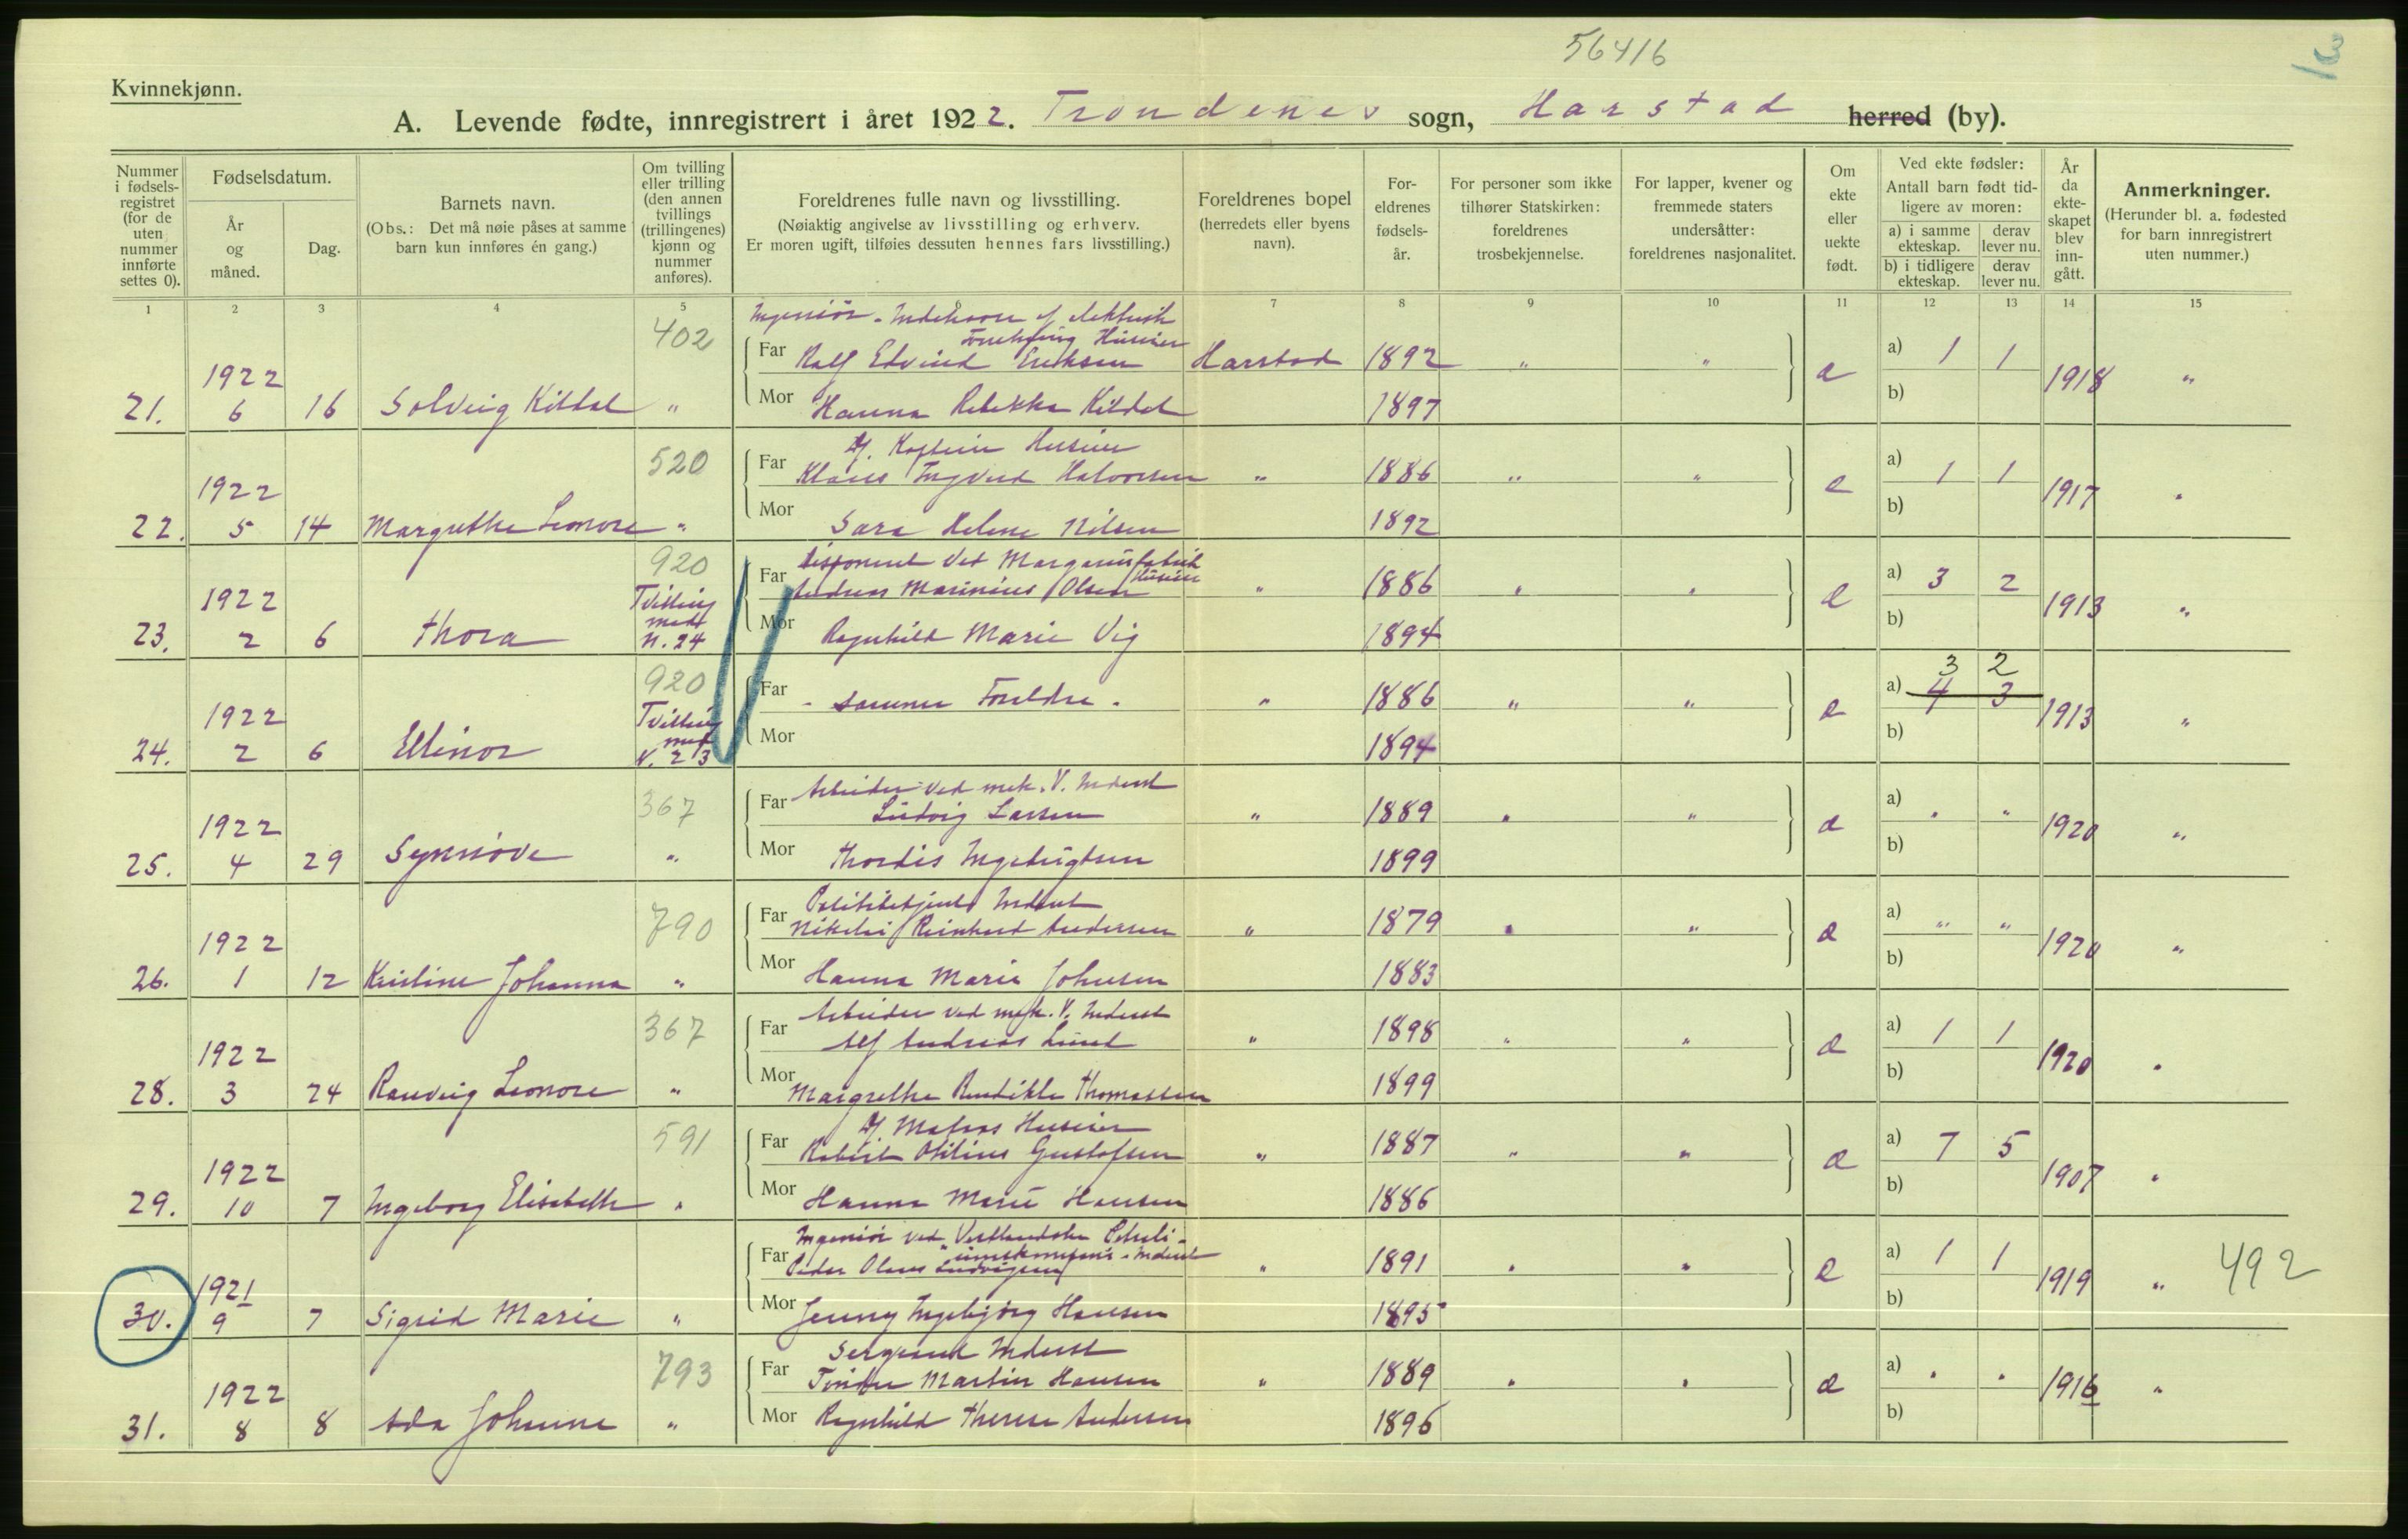 56416
13
Kvinnekjønn.
A. Levende fødte, innregistrert i året 1922. Trondenes sogn, Harstad herred (by).
Nummer i fødsels-registret (for de uten nummer innførte settes 0).
Fødselsdatum.
År og måned.
Dag.
Barnets navn.
(Obs.: Det må nøie påses at samme barn kun innføres én gang.)
Om tvilling eller trilling (den annen tvillings (trillingenes) kjønn og nummer anføres).
Foreldrenes fulle navn og livsstilling.
(Nøiaktig angivelse av livsstilling og erhverv.
Er moren ugift, tilføies dessuten hennes fars livsstilling.)
Foreldrenes bopel
(herredets eller byens navn).
For-eldrenes fødsels-år.
For personer som ikke tilhører Statskirken: foreldrenes trosbekjennelse.
For lapper, kvener og fremmede staters undersåtter: foreldrenes nasjonalitet.
Om ekte eller uekte født.
Ved ekte fødsler:
Antall barn født tid-ligere av moren:
a) i samme ekteskap.
derav lever nu.
b) i tidligere ekteskap.
derav lever nu.
År da ekte-skapet blev inn-gått.
Anmerkninger.
(Herunder bl. a. fødested for barn innregistrert uten nummer.)
1 2 3 4 5 7 8 9 10 11 12 13 14 15
402
Ingeniör - Indehaver af elektrisk
Forretning Huseier
Far Ralf Edvind Eriksen Harstad 1892 " "
1922
21. 6 16 Solveig Kildal "
Mor Hanna Rebekka Kildal 1897
e a) 1 1 b) 1918 "
520
Kaptein Huseier
Far Klaus Ingvard Halvorsen " 1886 " "
1922
22. 5 14 Margrethe Leonore "
Mor Sara Helene Nilsen 1892
e a) 1 1 b) 1917 "
920
Disponent ved Margarinfabrik
Huseier
Far Andreas Marinius Olsen " 1886 " "
1922
23. 2 6 Thora Tvilling med N. 24
Mor Ragnhild Marie Vig 1894
e a) 3 2 b) 1913 "
920
Far - samme Foreldre - " 1886 " "
1922
24. 2 6 Ellinor Tvilling med N. 23
Mor 1894
3 2
e a) 4 3 b) 1913 "
367
Arbeider ved mek. V. Inderst
Far Ludvig Larsen " 1889 " "
1922
25. 4 29 Synnöve "
Mor Thordis Ingebrigtsen 1899
e a) " " b) 1920 "
790
Politibetjent Inderst
Far Nikolai Reinhard Andersen " 1879 " "
1922
26. 1 12 Kristine Johanna "
Mor Hanna Marie Johnsen 1883
e a) " " b) 1920 "
367
Arbeider ved mek. V. Inderst
Far Alf Andreas Lund " 1898 " "
1922
28. 3 24 Ranveig Leonore "
Mor Margrethe Bendikte Thomassen 1899
e a) 1 1 b) 1920 "
591
Matros Huseier
Far Robert Otilius Gustafsen " 1887 " "
1922
29. 10 7 Ingeborg Elisabeth "
Mor Hanna Marie Hansen 1886
e a) 7 5 b) 1907 "
Ingeniör ved Vestlandske Petroli-
umskompani - Inderst
Far Peder Olaus Ludvigsen " 1891 " "
1921
30. 9 7 Sigrid Marie "
Mor Jenny Ingebjörg Hansen 1895
e a) 1 1 b) 1919 " 492
793
Sergeant Inderst
Far Martin Hansen " 1889 " "
1922
31. 8 8 Ada Johanne "
Mor Ragnhild Therese Andersen 1896
e a) " " b) 1916 "